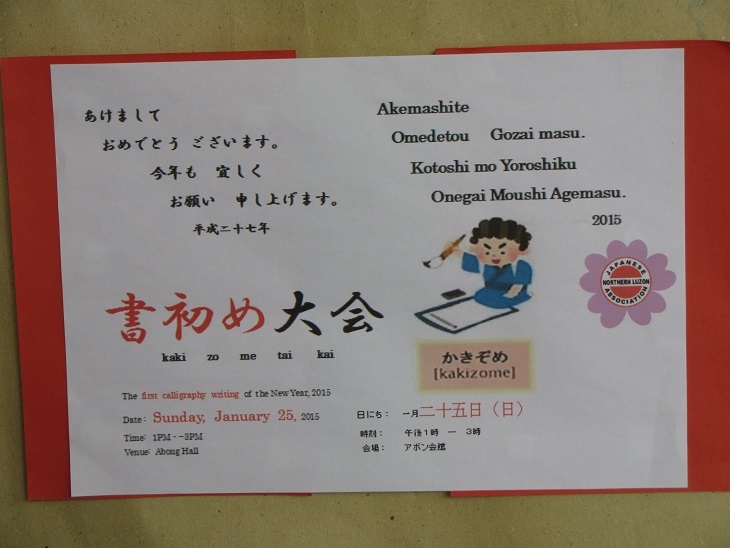 あけまして
おめでとう ございます。
今年も 宜しく
お願い 申し上げます。
平成二十七年
Akemashite
Omedetou Gozai masu.
Kotoshi mo Yoroshiku
Onegai Moushi Agemasu.
2015
JAPANESE
NORTHERN LUZON
ASSOCIATION
書初め大会
kaki zo me tai kai
かきぞめ
[kakizome]
The first calligraphy writing of the New Year, 2015
Date: Sunday, January 25, 2015
Time: 1PM - -3PM
Venue: Abong Hall
日にち： 一月二十五日（日）
時刻： 午後1時 ー 3時
会場： アボン会館